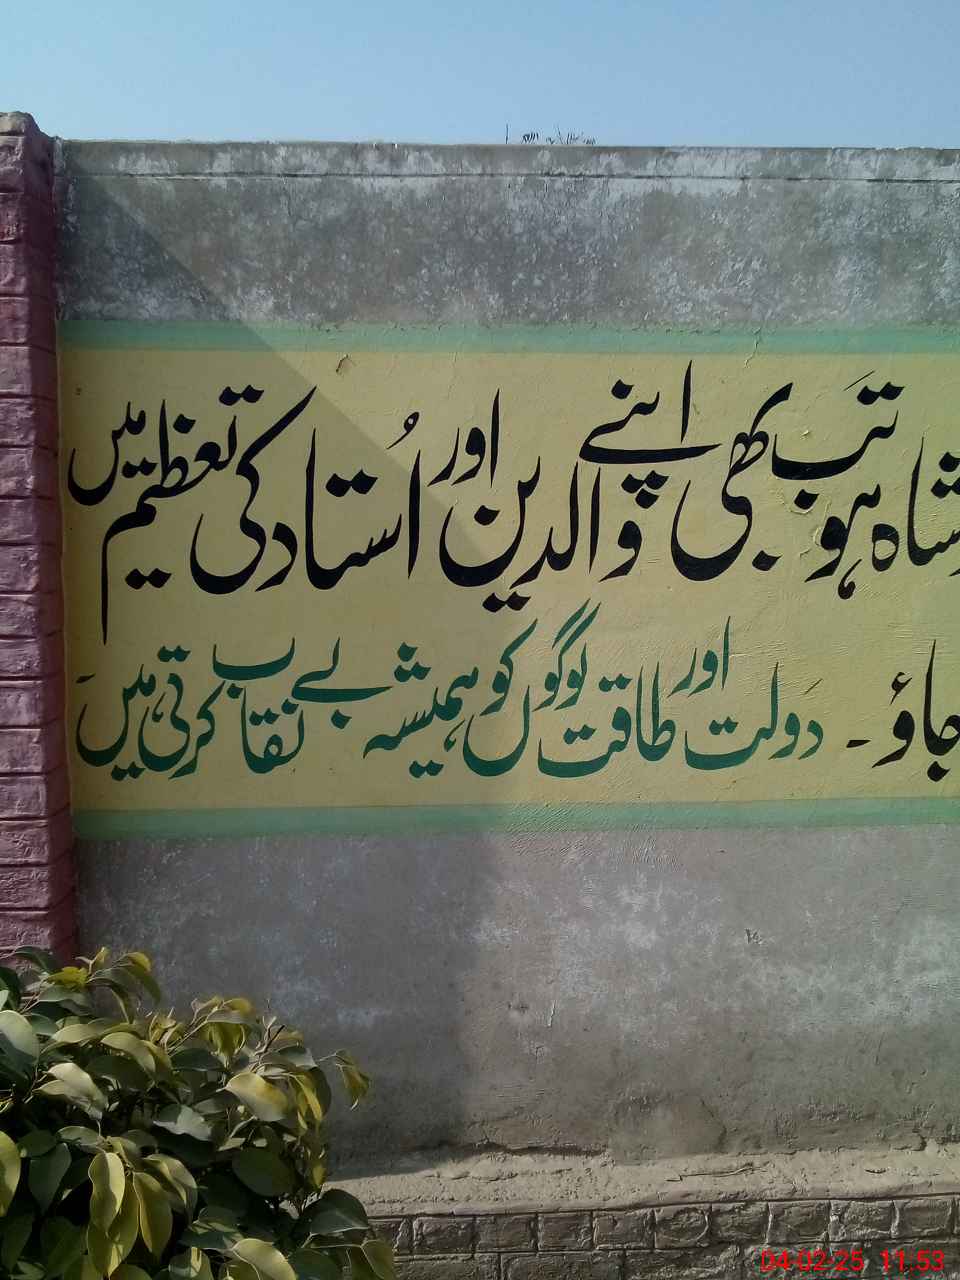 شاہ ہو تب بھی اپنے والدین اور اُستاد کی تعظیم میں
جاؤ۔ دولت اور طاقت لوگوں کو ہمیشہ بے نقاب کرتی ہیں۔
04-02-25 11:53